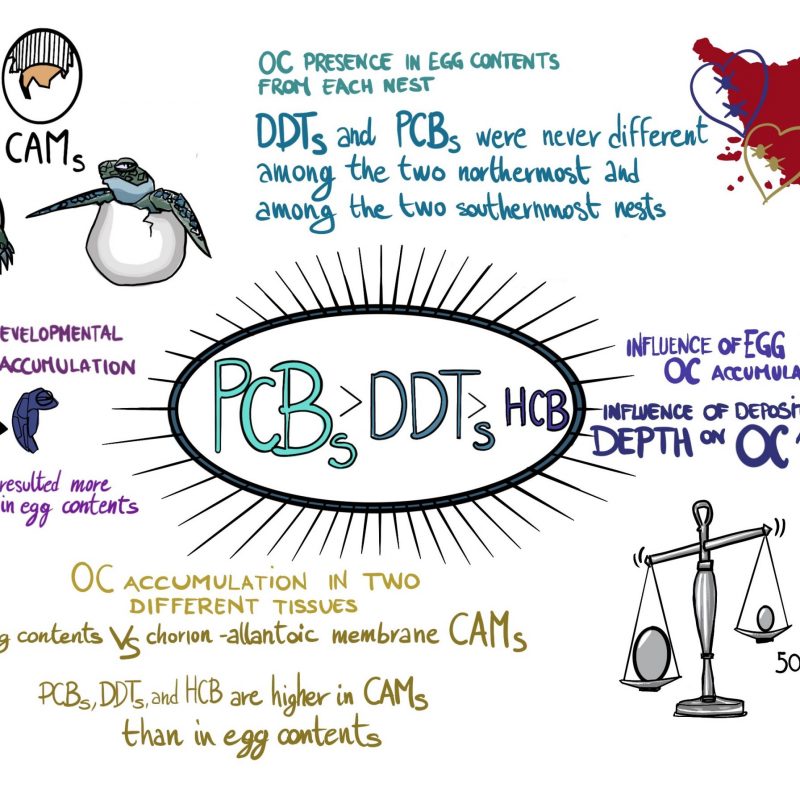 CAMs
OC PRESENCE IN EGG CONTENTS
FROM EACH NEST
DDTs and PCBs were never different
among the two northermost and
among the two southernmost nests
EVELOPMENTAL
ACCUMULATION
resulted more
in egg contents
PCBs > DDTs > HCB
INFLUENCE OF EGG
OC ACCUMULA
INFLUENCE OF DEPOSIT
DEPTH ON OC
OC ACCUMULATION IN TWO
DIFFERENT TISSUES
g contents VS chorion-allantoic membrane CAMs
PCBs, DDTs, and HCB are higher in CAMs
than in egg contents
50